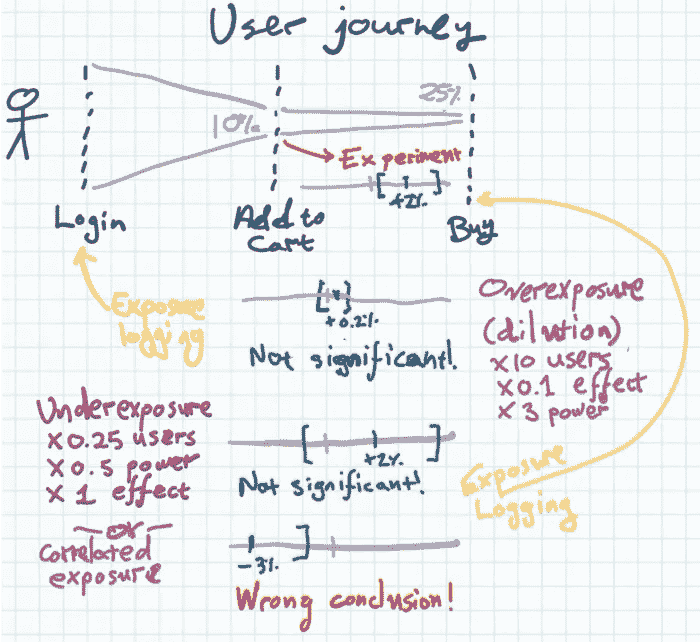 User journey
10%
25%
Experiment
[ +2% ]
Login
Add to
Cart
Buy
Exposure
logging
[ ]
+0.2%
Not significant!
Overexposure
(dilution)
x10 users
x0.1 effect
x 3 power
Underexposure
x0.25 users
x0.5 power
x 1 effect
[ +2% ]
Not significant!
Exposure
Logging
— or —
Correlated
exposure
-3% ]
Wrong conclusion!